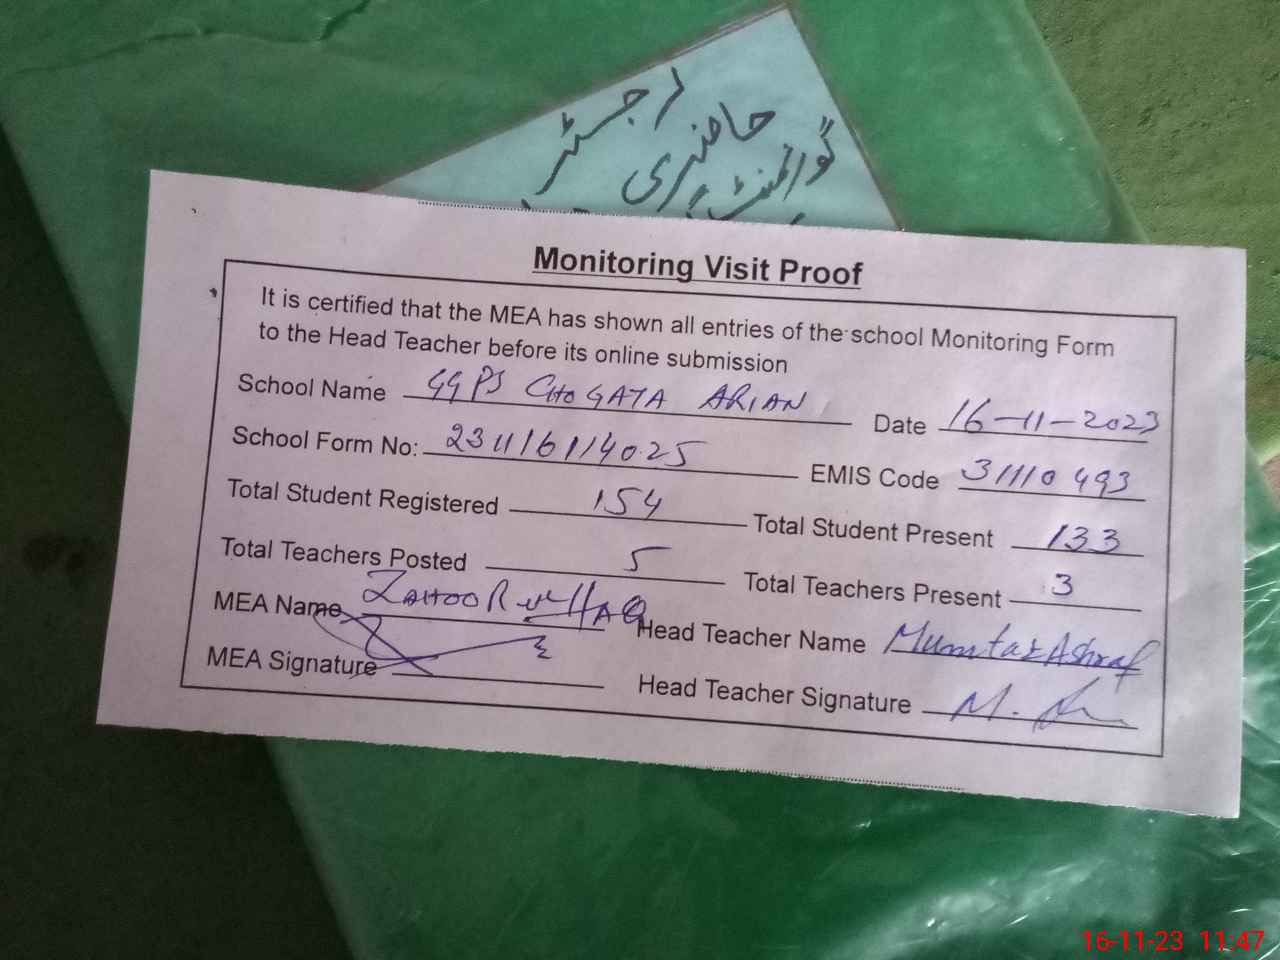 رجسٹر
حاضری
گورنمنٹ
Monitoring Visit Proof
It is certified that the MEA has shown all entries of the school Monitoring Form
to the Head Teacher before its online submission
School Name GGPS CHOGATA ARIAN Date 16-11-2023
School Form No: 231116114025 EMIS Code 31110493
Total Student Registered 154 Total Student Present 133
Total Teachers Posted 5 Total Teachers Present 3
MEA Name ZAHOOR ul HAQ Head Teacher Name Mumtaz Ashraf
MEA Signature Head Teacher Signature M.
16-11-23 11:47